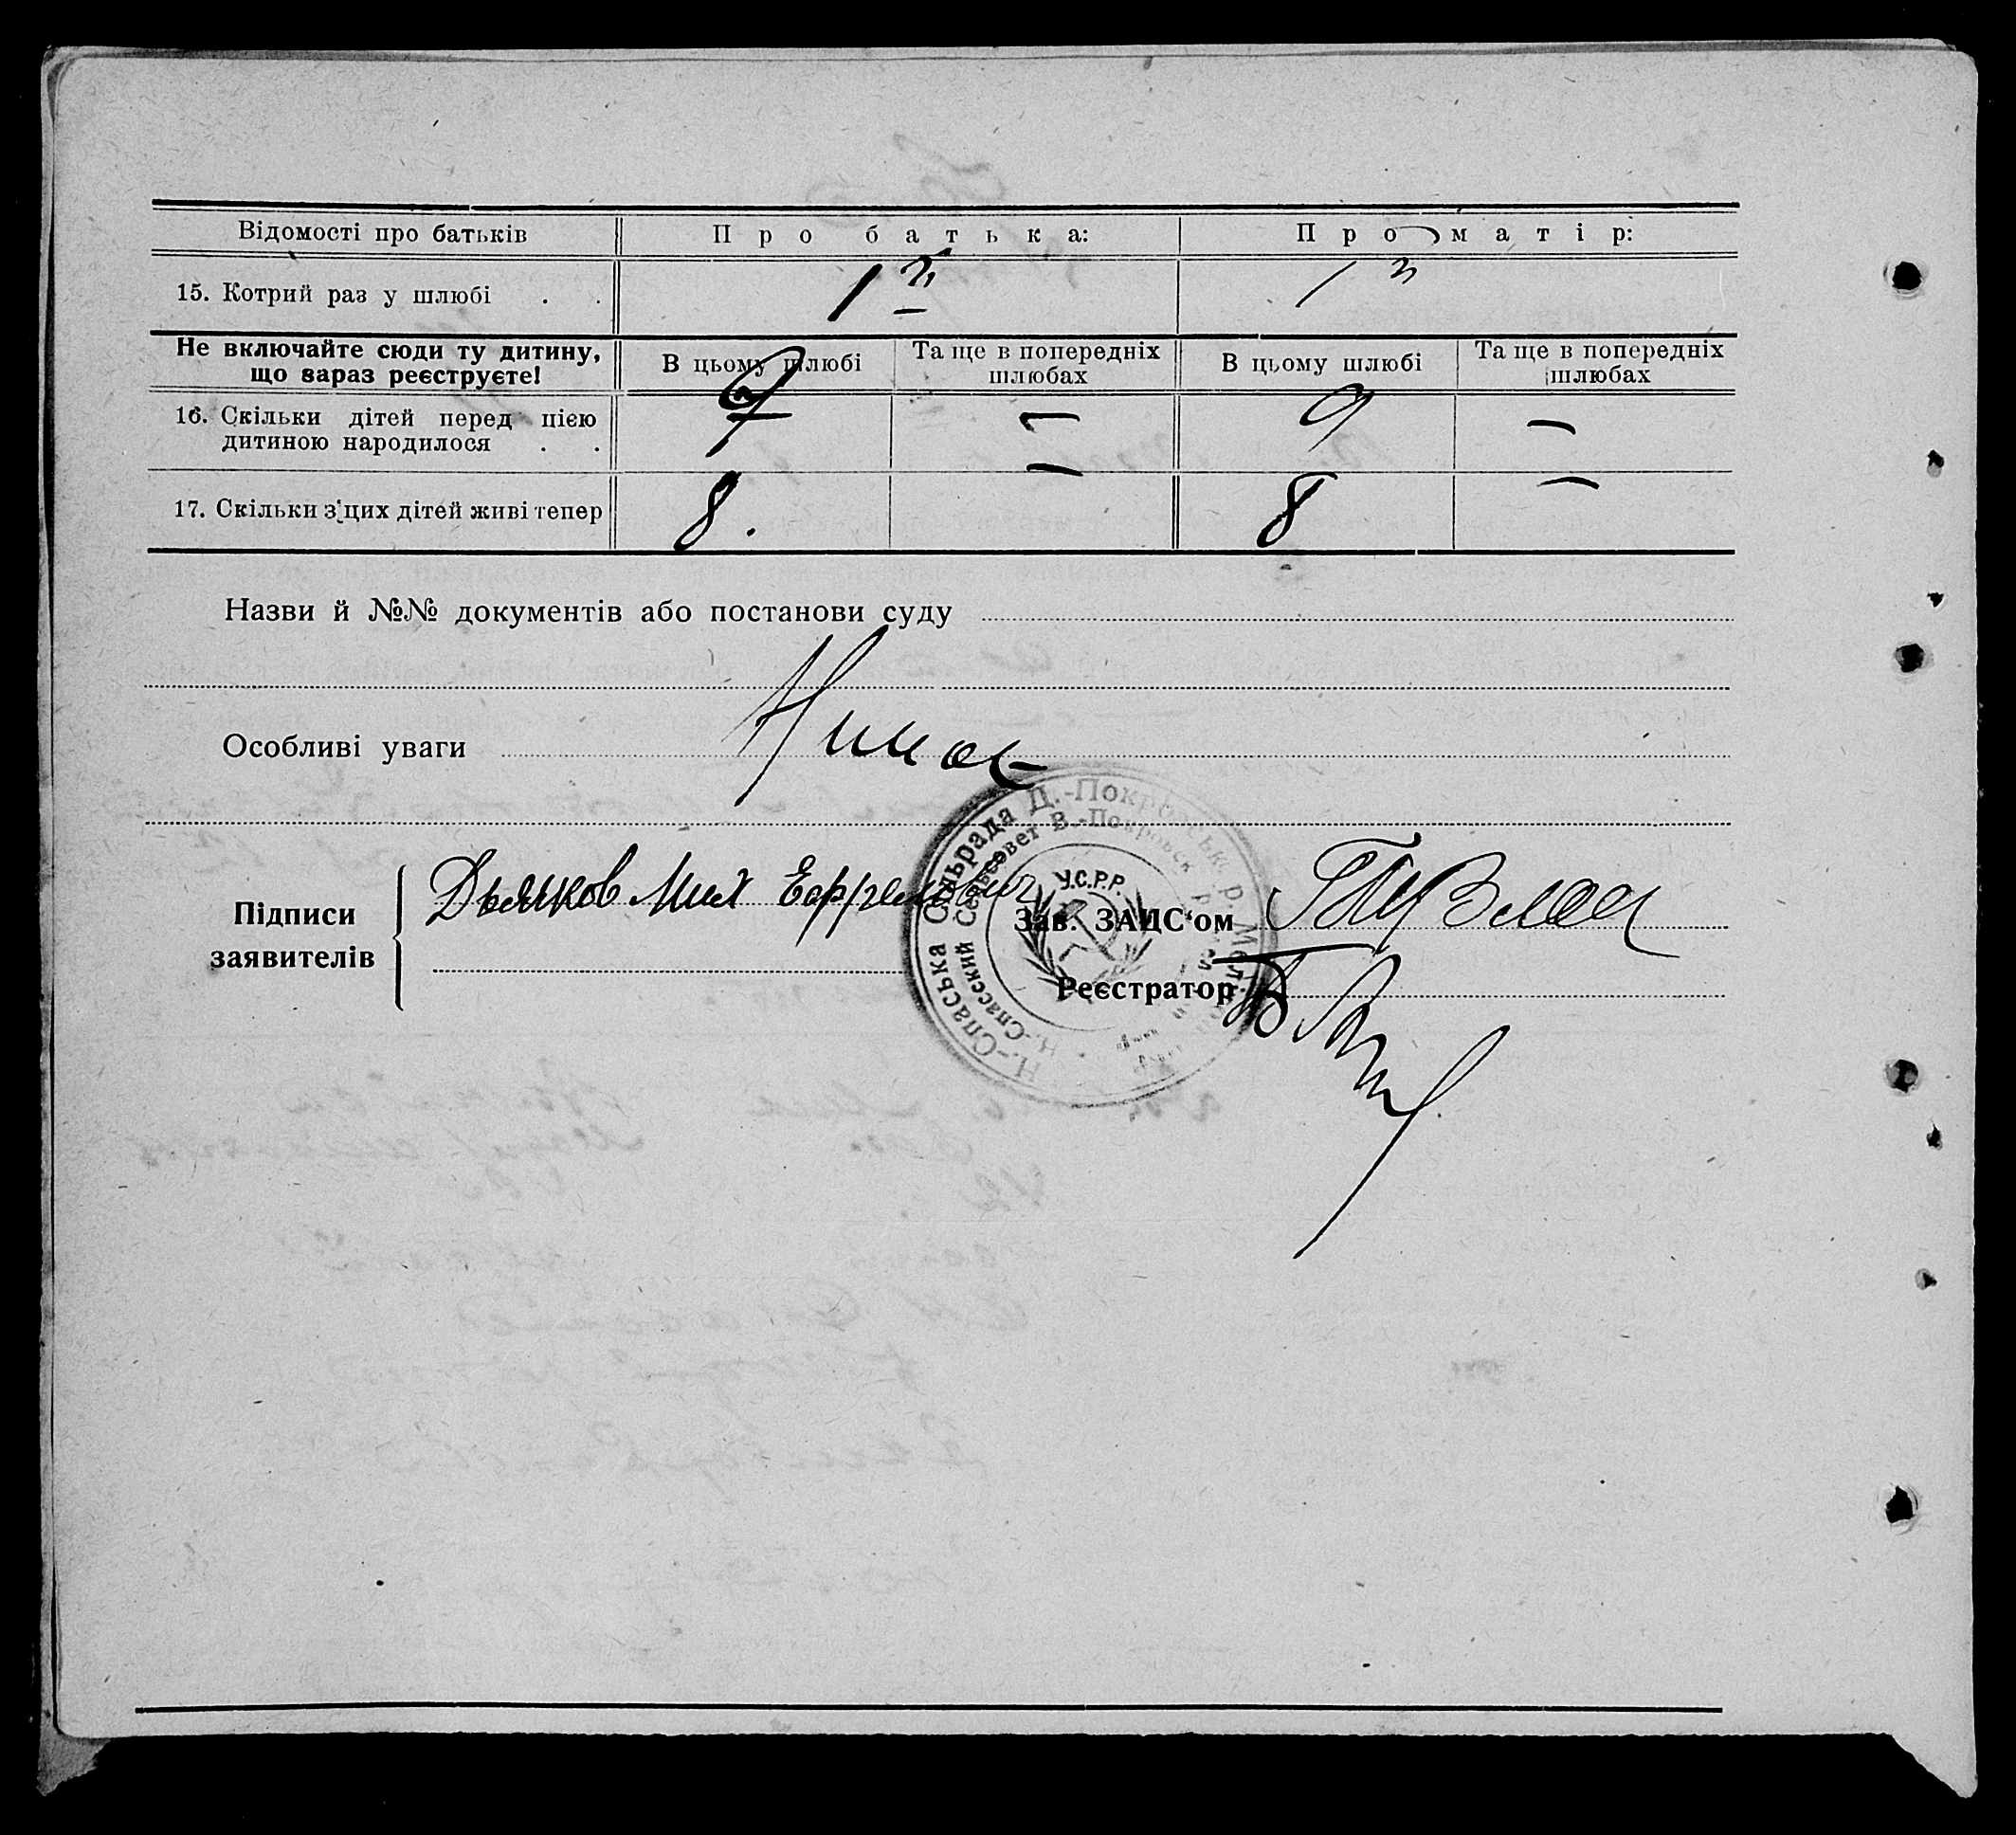 Відомості про батьків
Про батька:
Про матір:
15. Котрий раз у шлюбі . .
1й
1й
Не включайте сюди ту дитину,
що зараз реєструєте!
В цьому шлюбі
Та ще в попередніх
шлюбах
В цьому шлюбі
Та ще в попередніх
шлюбах
16. Скільки дітей перед цією
дитиною народилося . .
9
—
9
—
17. Скільки з цих дітей живі тепер
8.
—
8
—
Назви й №№ документів або постанови суду
Особливі уваги
Нимае
Підписи
заявителів
Дьяков Мих Еффемович
Зав. ЗАЦС'ом
Реєстратор
Н.-Спаська Сільрада Ц.-Покровськ. р.
Н.-Спасский Сельсовет В.-Покровск
У.С.Р.Р.